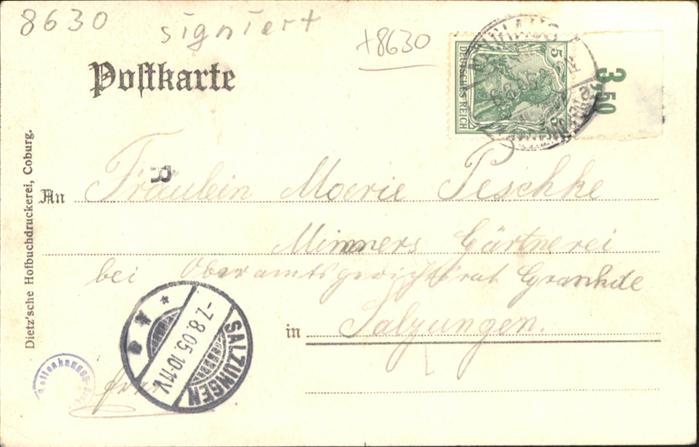 8630
signiert
+8630
Postkarte
5
DEUTSCHES REICH
3,50
R
An Fräulein Moerie Peschke
Minners Gärtnerei
bei Oberamtsgerichtsrat
in Salzungen.
SALZUNGEN
-7.8.05.10-11V.
Dietz'sche Hofbuchdruckerei, Coburg.